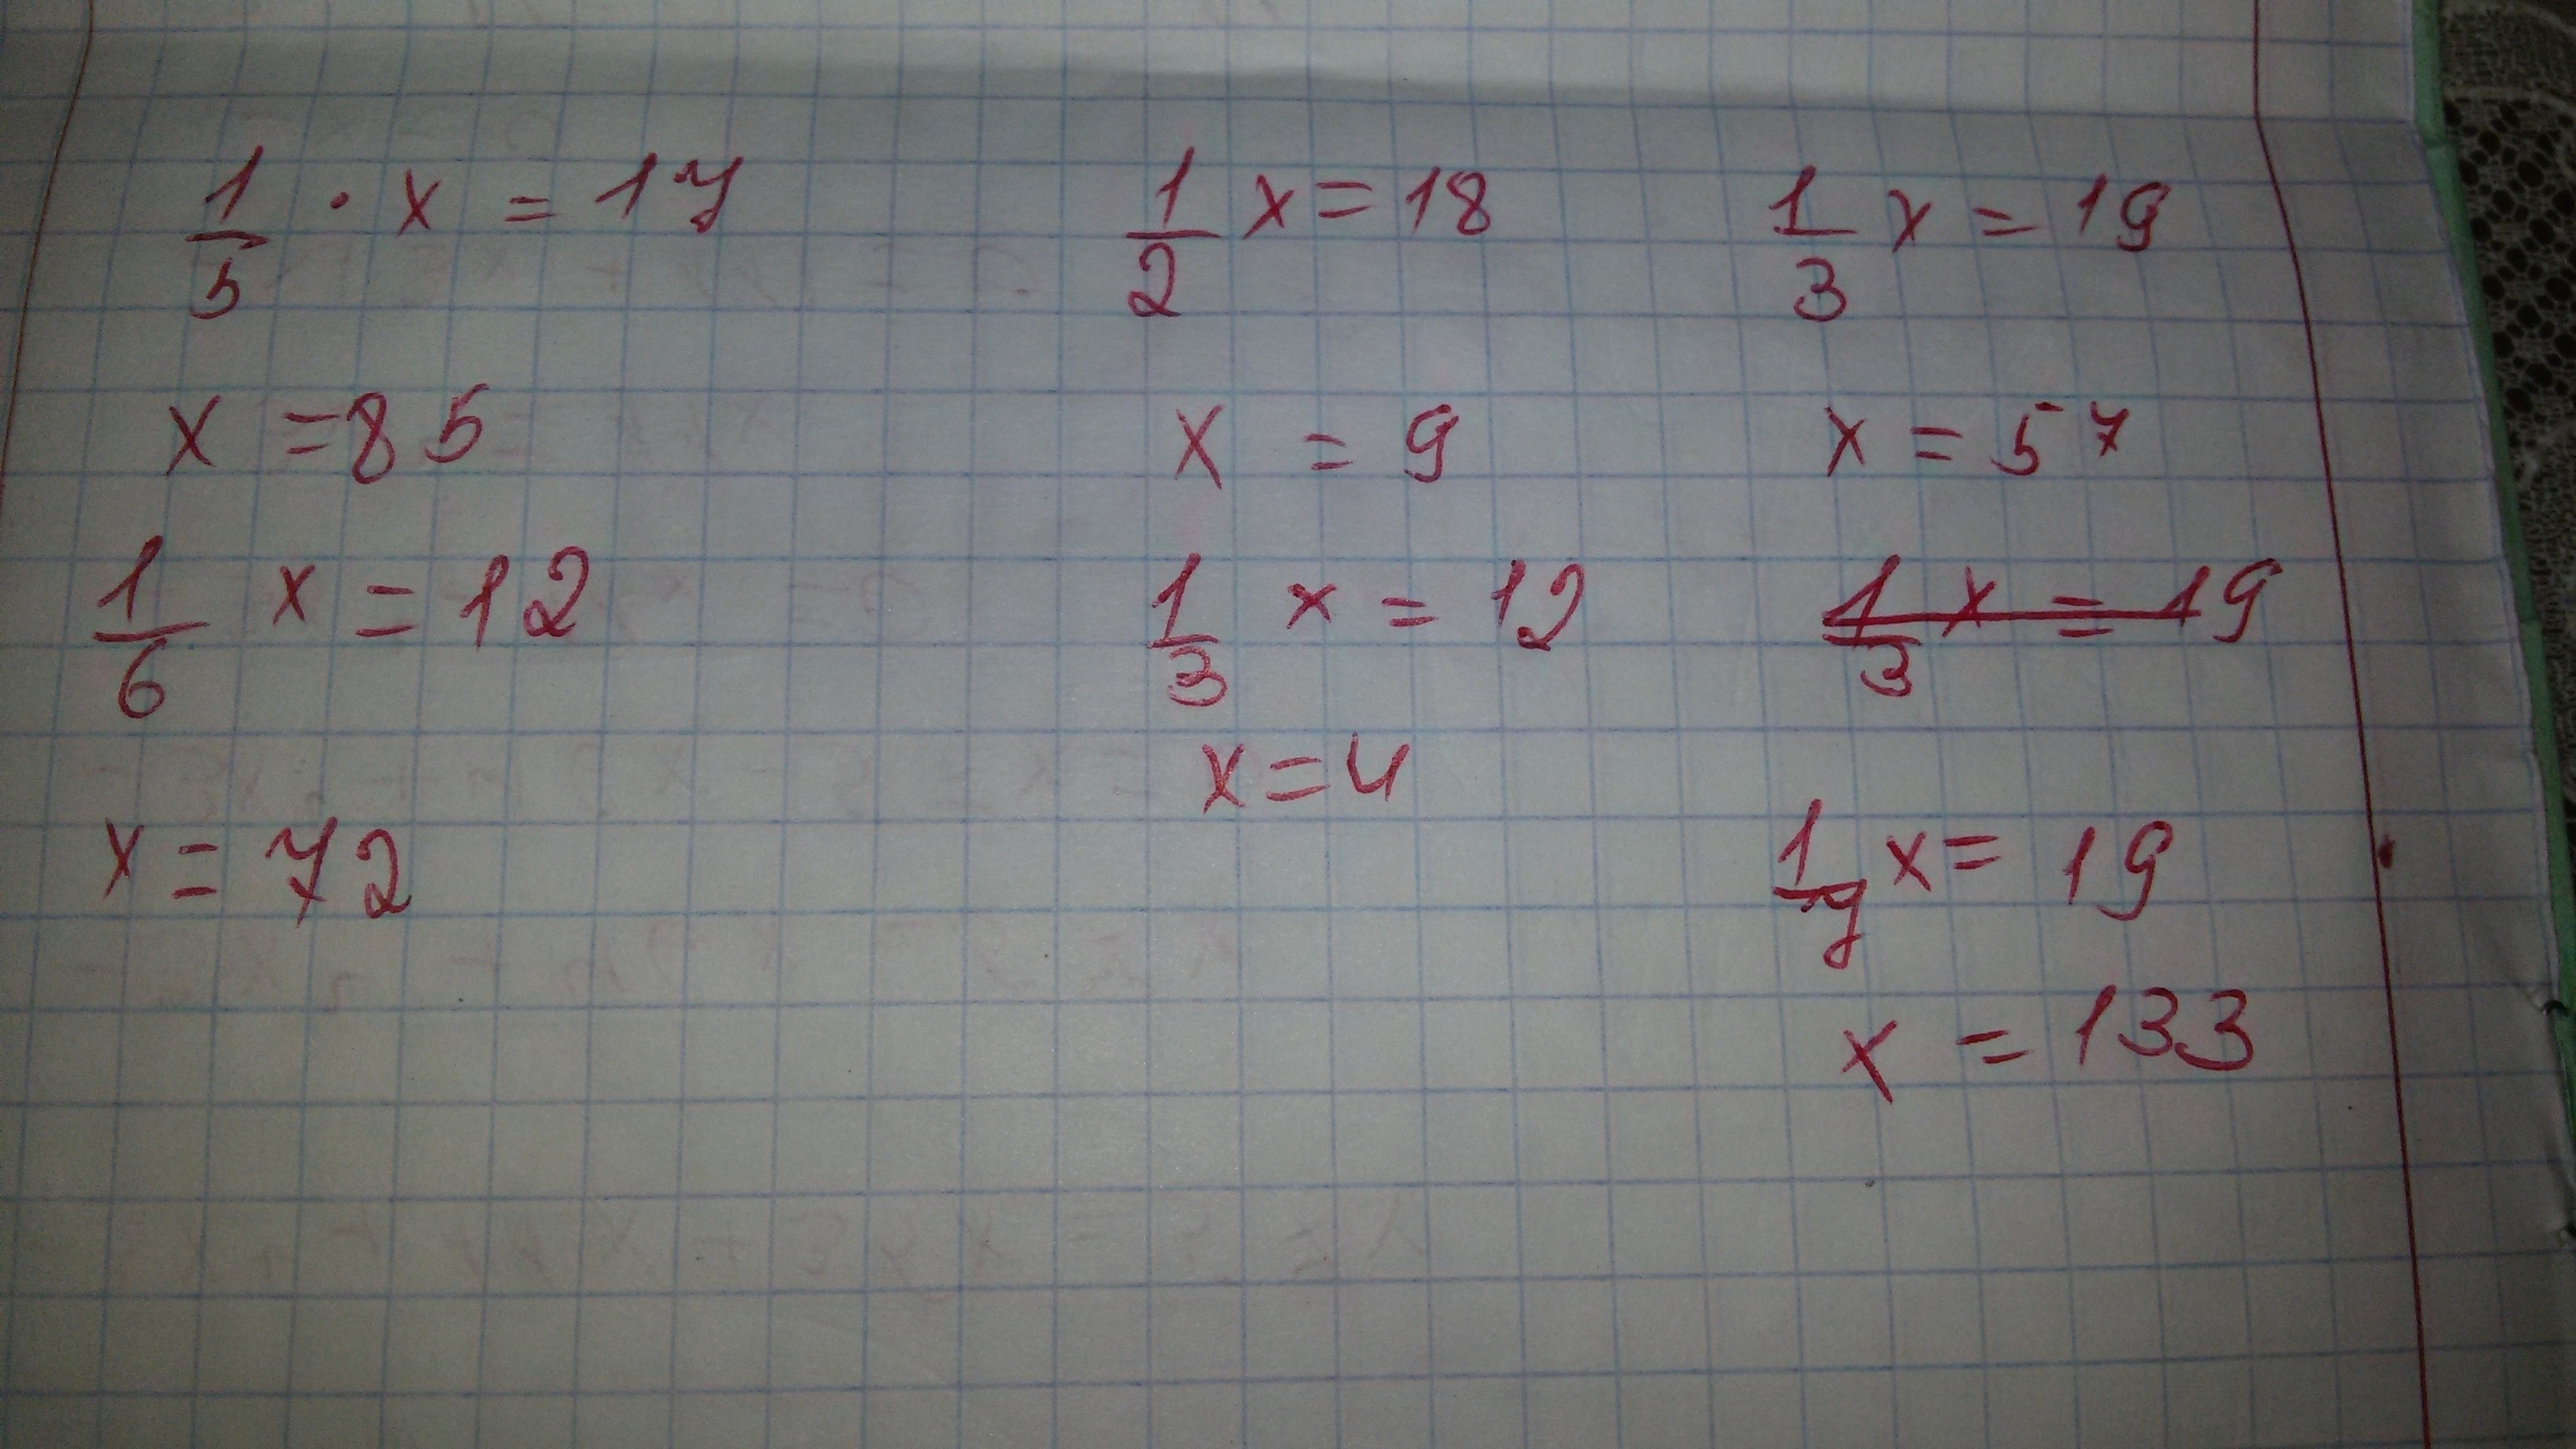 1/5 · x = 17
x = 85
1/6 x = 12
x = 72
1/2 x = 18
x = 9
1/3 x = 12
x = 4
1/3 x = 19
x = 57
1/3 x = 19
1/7 x = 19
x = 133